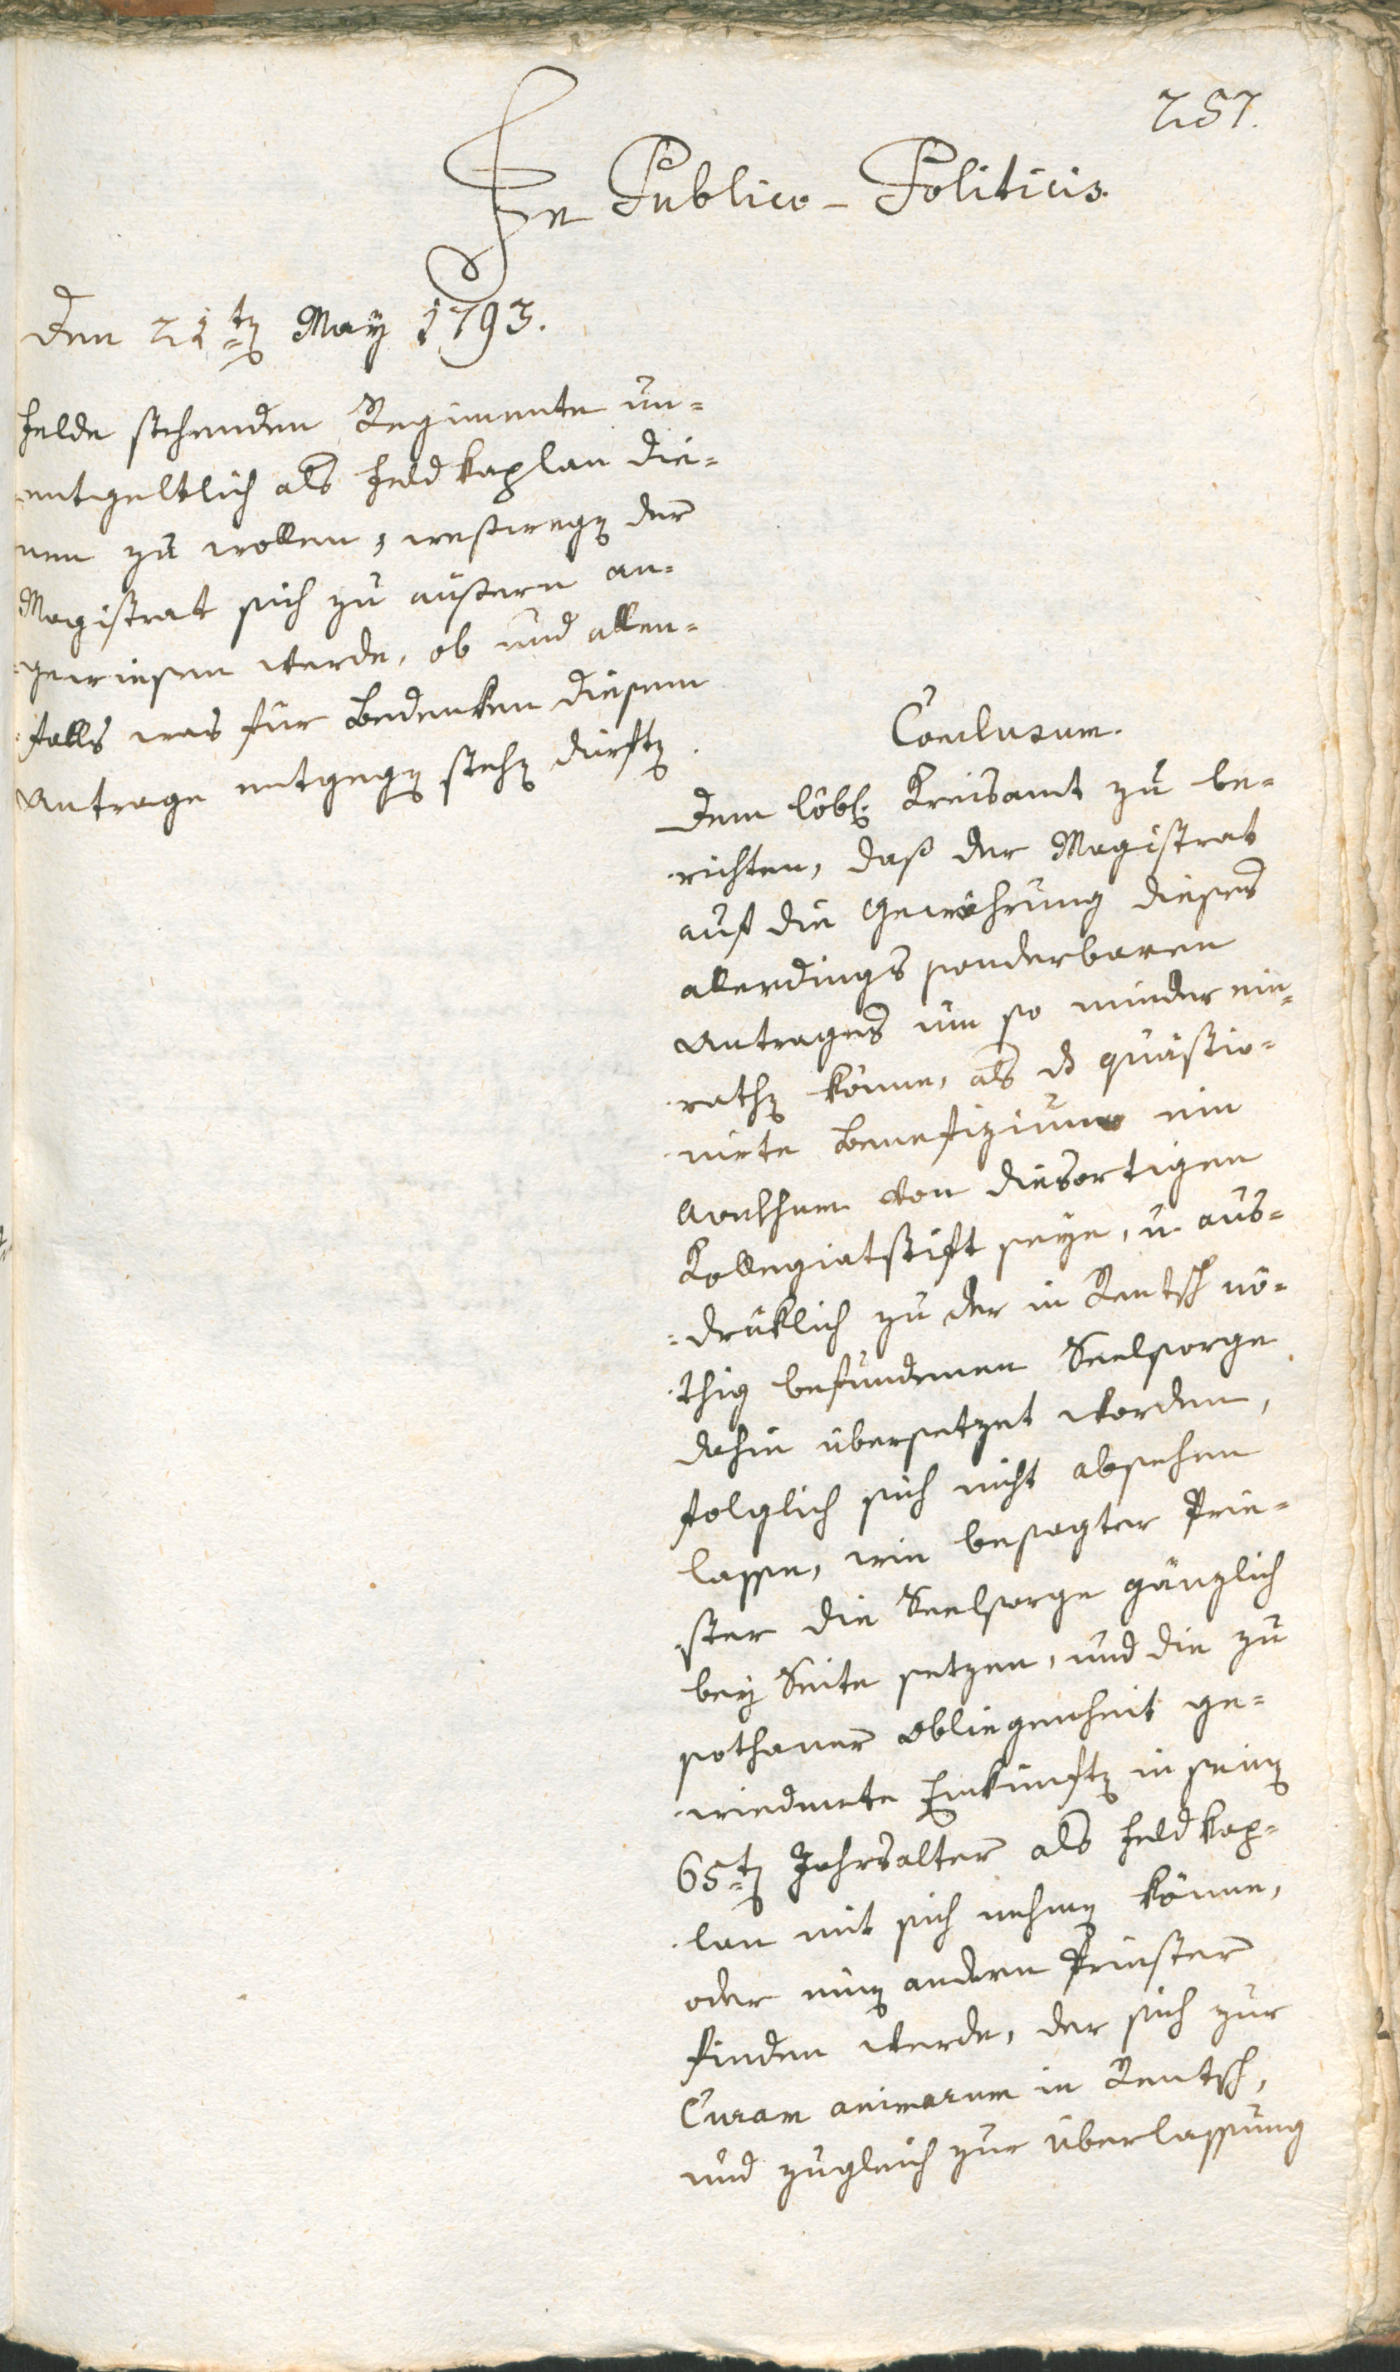 257.
In Publico-Politicis.
Den 21ten May 1793.
Felde stehenden Regimente un=
entgeltlich als Feldkaplan die=
nen zu wollen, weßwegen der
Magistrat sich zu äußern an=
=gewiesen werde, ob und allen=
falls was für Bedenken diesem
Antrage entgegen stehen dürften.
Conclusum.
Dem löbl. Kreisamt zu be=
richten, daß der Magistrat
auf die Gewährung dieses
allerdings sonderbaren
Antrages um so minder ein=
rathen könne, als das quästio=
nirte Benefizium ein
von diesortigen
Kollegiatstift seye, u. aus=
=drüklich zu der in Rentsch nö=
thig befundenen Seelsorge
dahin übersetzet worden,
folglich sich nicht absehen
lasse, wie besagter Prie=
ster die Seelsorge gänzlich
bey Seite setzen, und die zu
sothaner Obliegenheit ge=
wiedmete Einkünften in seinen
65ten Jahrsalter als Feldkap=
lan mit sich nehmen könne,
oder einen andern Priester
finden werde, der sich zur
Curam animarum in Rentsch,
und zugleich zur Überlassung